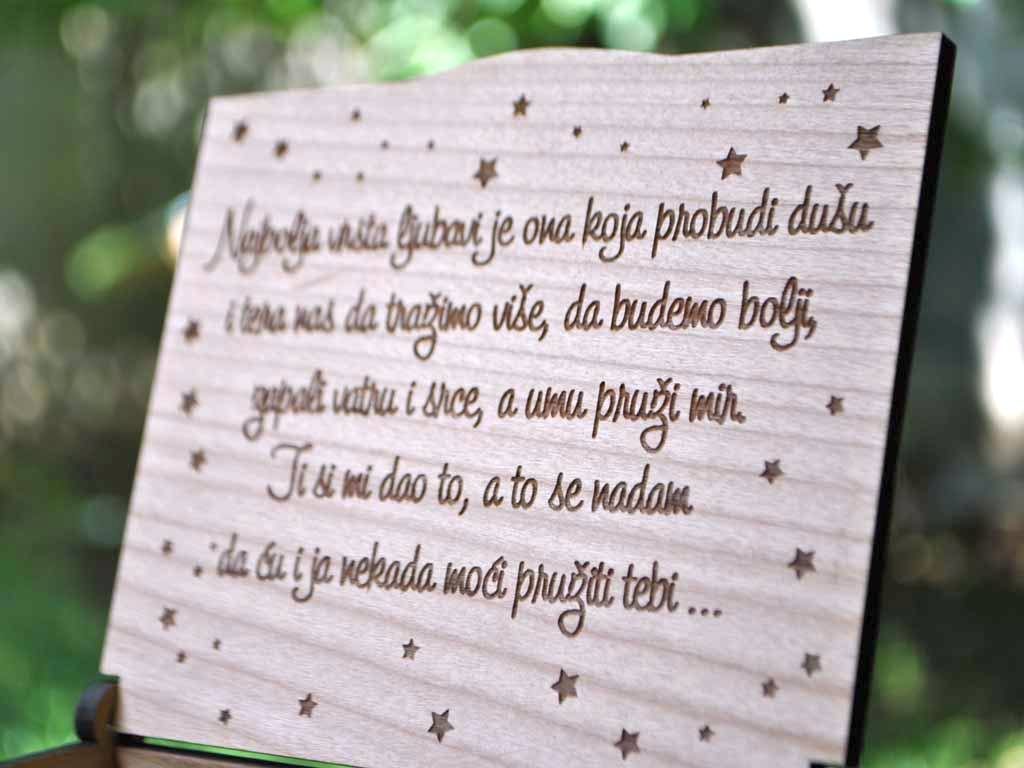 Najbolja vrsta ljubavi je ona koja probudi dušu
i tera nas da tražimo više, da budemo bolji,
zapali vatru i srce, a umu pruži mir.
Ti si mi dao to, a to se nadam
da ću i ja nekada moći pružiti tebi ...